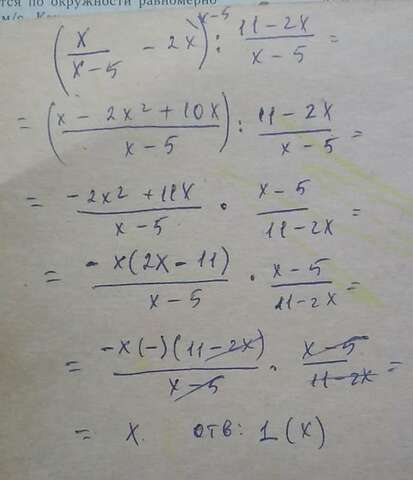 ся по окружности равномерно
(x/(x-5) - 2x)^(x-5) : (11-2x)/(x-5) =
= ((x - 2x² + 10x)/(x-5)) : (11-2x)/(x-5) =
= (-2x² + 11x)/(x-5) · (x-5)/(11-2x) =
= (-x(2x-11))/(x-5) · (x-5)/(11-2x) =
= (-x(-)(11-2x))/(x-5) · (x-5)/(11-2x) =
= x. отв: 1 (x)